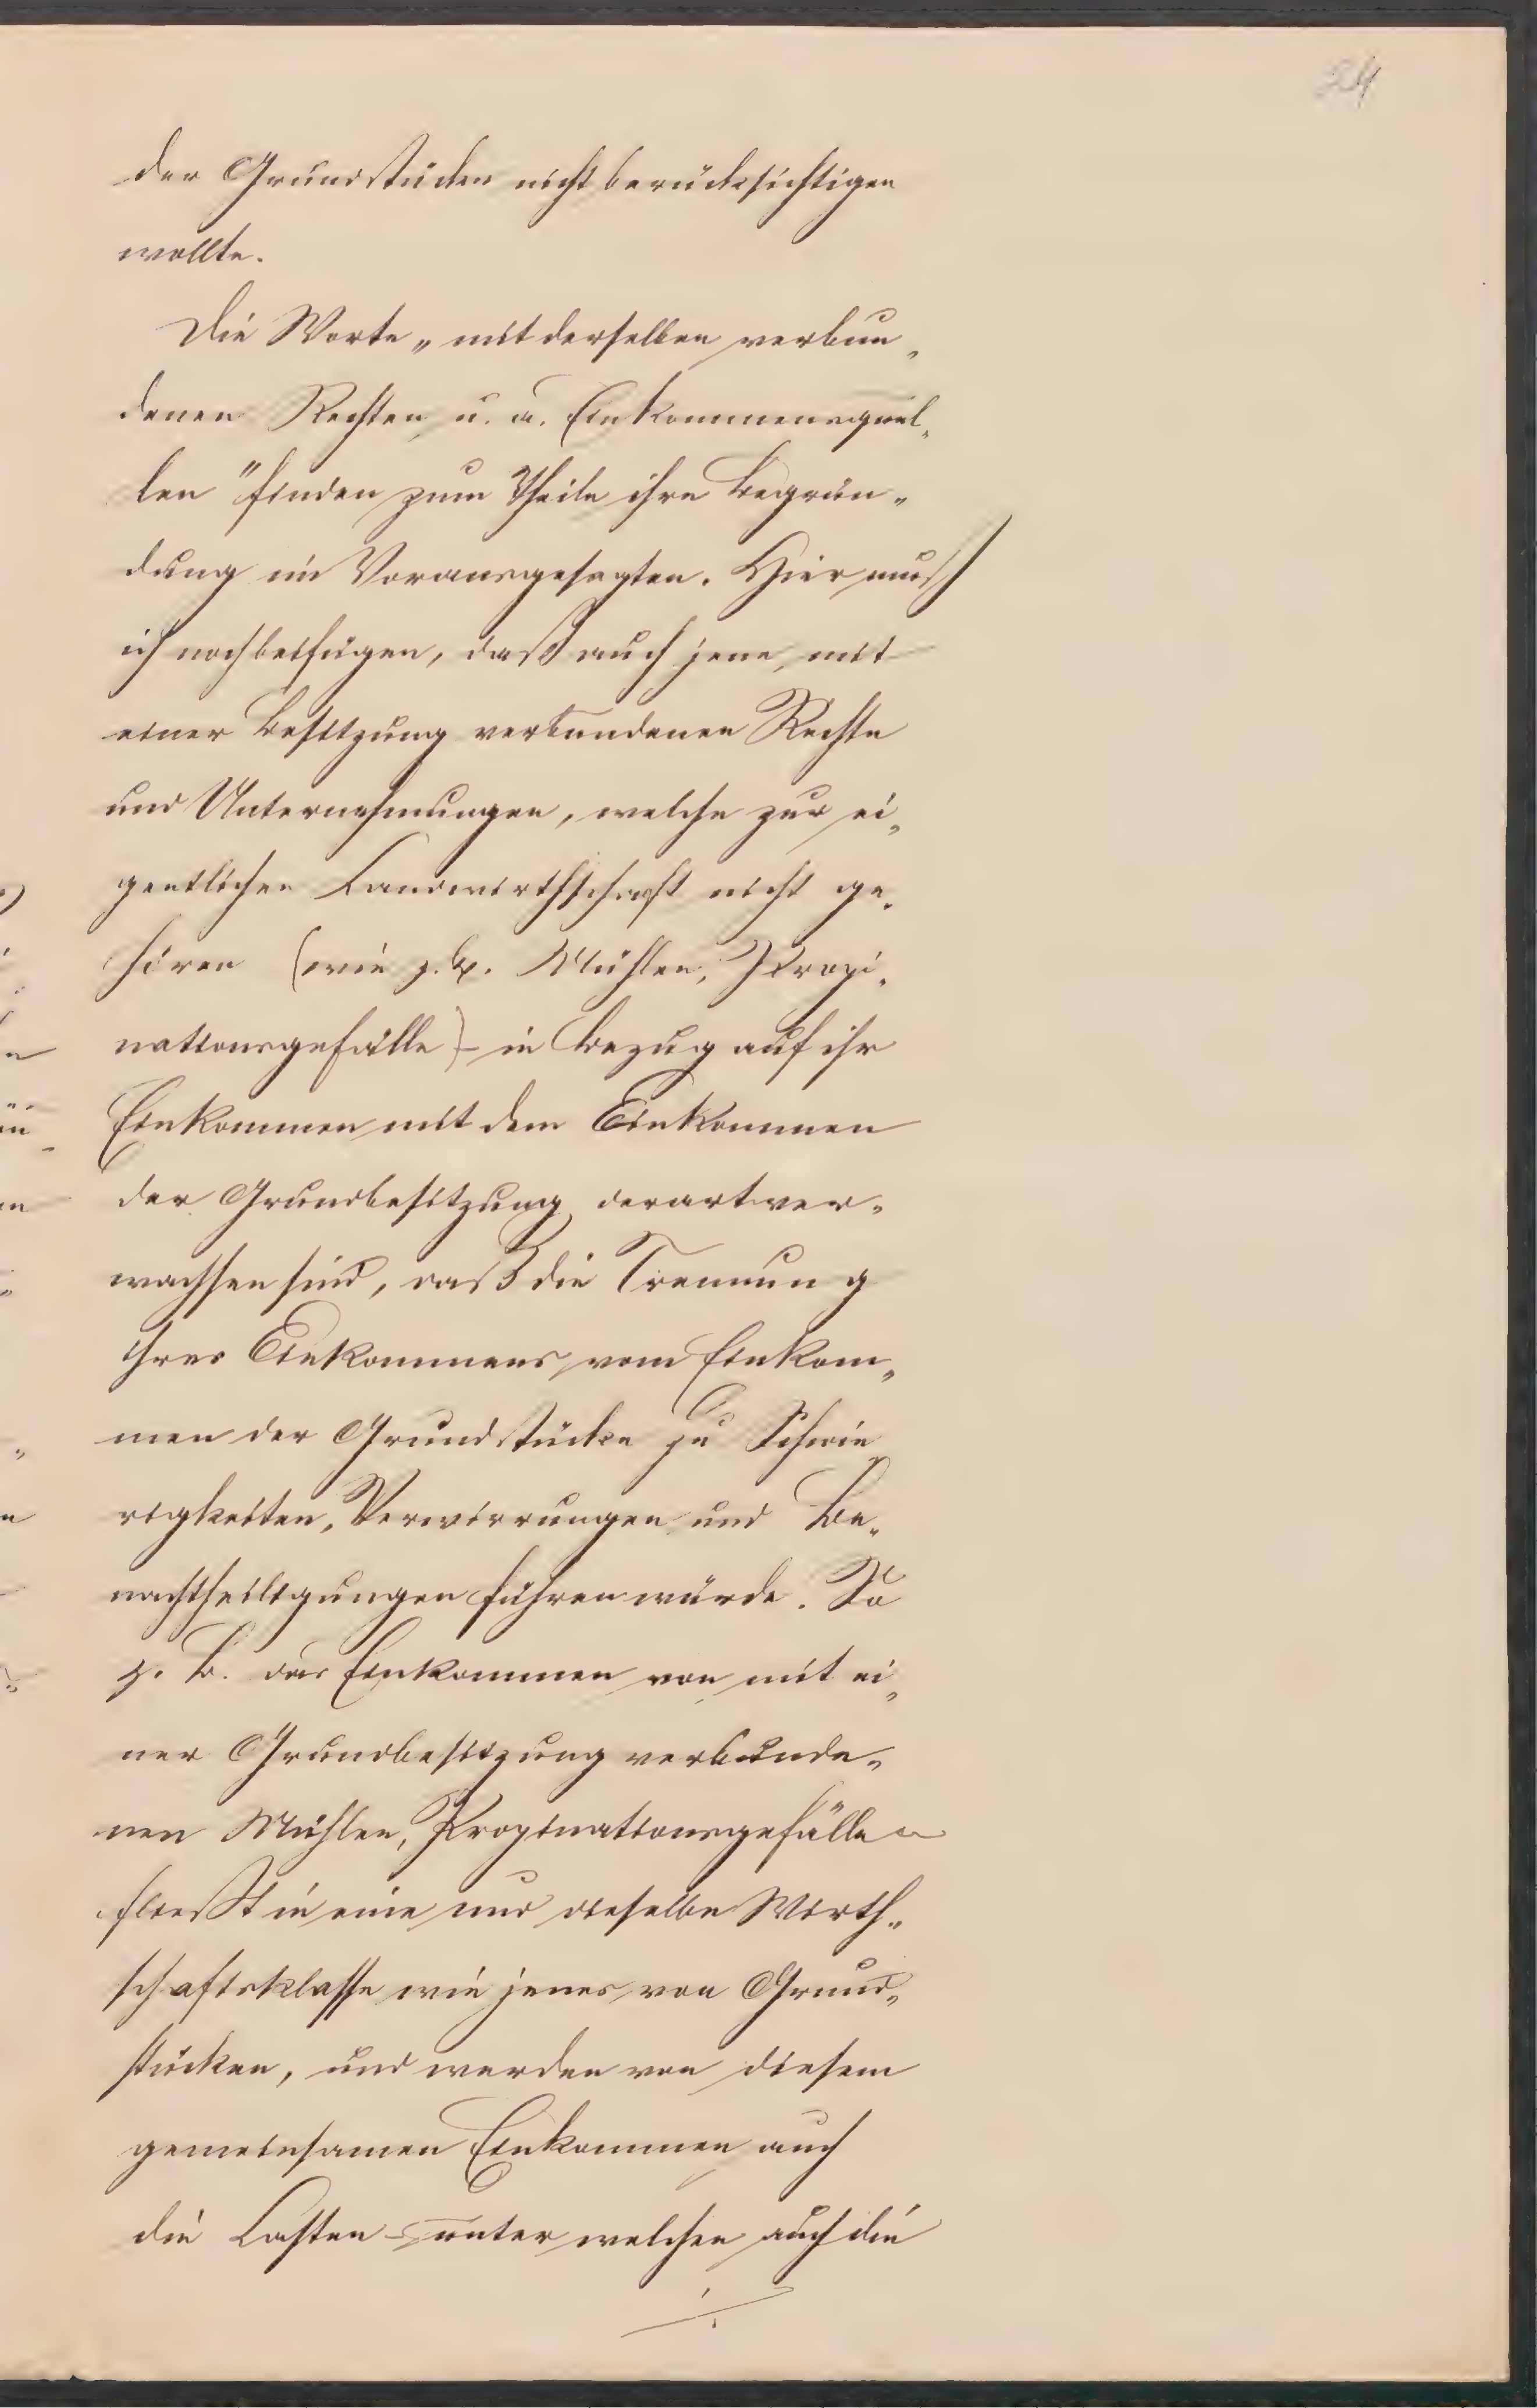 24
der Grundstücken nicht berücksichtigen
wollte.
Die Worte „mit derselben verbun„
denen Rechten u. a. Einkommensquel„
len" finden zum Theile ihre Begrün„
dung im Vorausgesagten. Hier muß
ich noch beifügen, daß auch jene, mit
einer Besitzung verbundenen Rechte
und Unternehmungen, welche zur ei„
gentlichen Landwirthschaft nicht ge„
hören (wie z. B. Mühlen, Propi„
nationsgefälle) – in Bezug auf ihr
Einkommen mit dem Einkommen
der Grundbesitzung derart ver„
wachsen sind, daß die Trennung
ihres Einkommens vom Einkom„
men der Grundstücke zu Schwie„
rigkeiten, Verwirrungen und Be„
nachtheiligungen führen würde. So
z. B. das Einkommen von mit ei„
ner Grundbesitzung verbunde„
nen Mühlen, Propinationsgefällen
fließt in eine und dieselbe Wirth„
schaftsklasse wie jenes von Grund„
stücken, und werden von diesem
gemeinsamen Einkommen auch
die Lasten – unter welchen auch die
./.